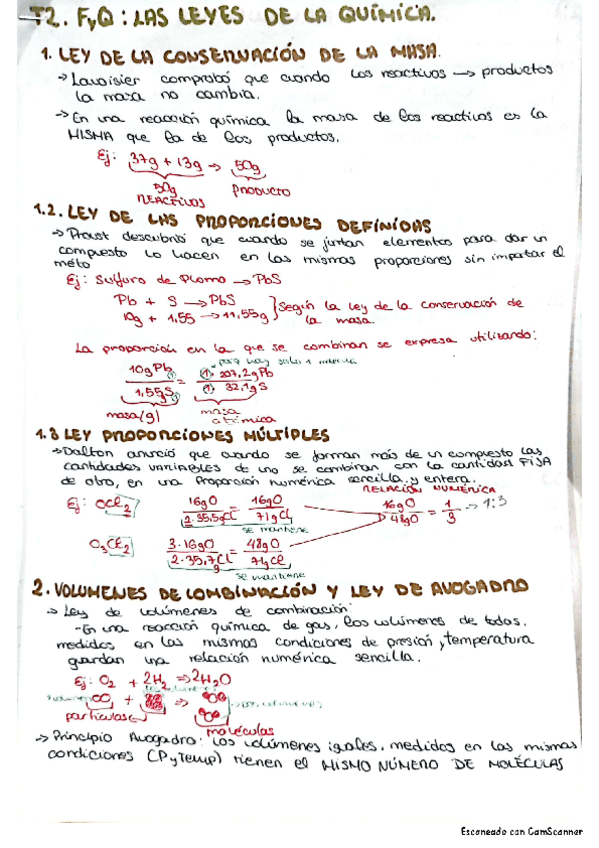 T2. FyQ: LAS LEYES DE LA QUÍMICA.
1. LEY DE LA CONSERVACIÓN DE LA MASA.
→ Lavoisier comprobó que cuando los reactivos → productos
la masa no cambia.
→ En una reacción química la masa de los reactivos es la
MISMA que la de los productos.
Ej: 37g + 13g → 50g
50g PRODUCTO
REACTIVOS
1.2. LEY DE LAS PROPORCIONES DEFINIDAS
→ Proust descubrió que cuando se juntan elementos para dar un
compuesto lo hacen en las mismas proporciones sin impatar el
méto
Ej: Sulfuro de Plomo → PbS
Pb + S → PbS
10g + 1,55 → 11,55g } Según la ley de la conservación de
la masa.
La proporción en la que se combinan se expresa utilizando:
10gPb / 1,55gS = 1·207,2gPb / 1·32,1gS
masa(g) masa atómica
1.3 LEY PROPORCIONES MÚLTIPLES
→ Dalton anunció que cuando se forman más de un compuesto las
cantidades variables de uno se combinan con la cantidad FIJA
de otro, en una proporción numérica sencilla y entera.
RELACIÓN NUMÉRICA
Ej: OCl2 16gO / 2·35,5gCl = 16gO / 71gCl 16gO / 48gO = 1/3 → 1:3
se mantiene
O3Cl2 3·16gO / 2·35,7gCl = 48gO / 71gCl
se mantiene
2. VOLUMENES DE COMBINACIÓN Y LEY DE AVOGADRO
→ Ley de volúmenes de combinación:
-En una reacción química de gas, los volúmenes de todos,
medidos en las mismas condiciones de presión y temperatura
guardan una relación numérica sencilla.
Ej: O2 + 2H2 → 2H2O
partículas
moléculas
→ Principio Avogadro: los volúmenes iguales, medidos en las mismas
condiciones (P y Temp) tienen el MISMO NÚMERO DE MOLÉCULAS
Escaneado con CamScanner